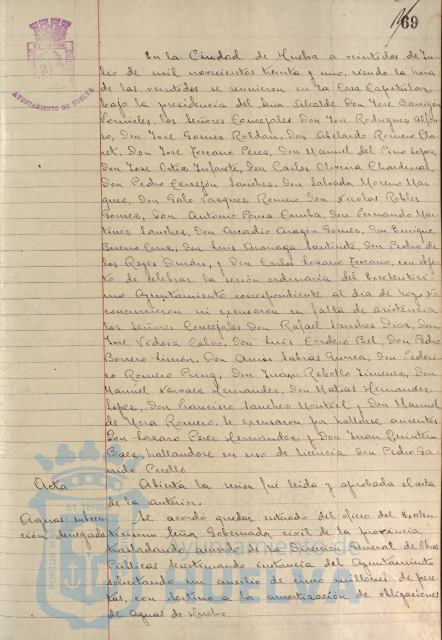 69
AYUNTAMIENTO DE HUELVA
En la Ciudad de Huelva a veintidos de Ju-
lio de mil novecientos treinta y uno, siendo la hora
de las veintidos se reunieron en la Casa Capitular
bajo la presidencia del Señor Alcalde Don José Barrigón
los Señores Concejales Don José Rodriguez Alfon-
so, Don José Gomez Roldan, Don Abelardo Romero Cla-
ret, Don José Toscano Perez, Don Manuel del Pino Lopez,
Don José Ortiz Infante, Don Carlos Oliveira Chardenal,
Don Pedro Cerrejón Sanchez, Don Salvador Moreno Mar-
quez, Don Galo Vazquez Romero, Don Nicolas Robles
Gomez, Don Antonio Pousa Camba, Don Fernando Mar-
tinez Sanchez, Don Arcadio Aragón Gomez, Don Enrique
Bueno Cruz, Don Luis Don Pedro de
los Reyes Durán, y Don Carlos Lozano Toscano, con obje-
to de celebrar la sesión ordinaria del Excelentísi-
mo Ayuntamiento correspondiente al dia de hoy. No
concurrieron ni expresaron su falta de asistencia
los Señores Concejales Don Rafael Sanchez Diaz, Don
José Vidosa Calvo, Don Luis Cordero Bel, Don Pedro
Borrero Limón, Don Amos Sabras Gurrea, Don Federi-
co Romero Don Juan Rebollo Jimenez, Don
Manuel Narvaez Hernandez, Don Matias Hernandez
Lopez, Don Francisco Sanchez Montiel y Don Manuel
de Mora Romero. Se expresaron por hallarse ausentes
Don Lazaro Perez Hernandez y Don Juan Quintero
Baez, hallandose en uso de licencia Don Pedro Ga-
rrido Perelló
Acta. Abierta la sesión fué leida y aprobada el acta
de la anterior.
Aguas: subven-
ción denegada
Se acordó quedar enterado del oficio del Excelen-
tísimo Señor Gobernador civil de la provincia
trasladando acuerdo de la Dirección General de Obras
Públicas desestimando instancia del Ayuntamiento
solicitando un auxilio de cinco millones de pese-
tas, con destino a la amortización de obligaciones
de Aguas de Huelva.
Ayuntamiento de
HUELVA